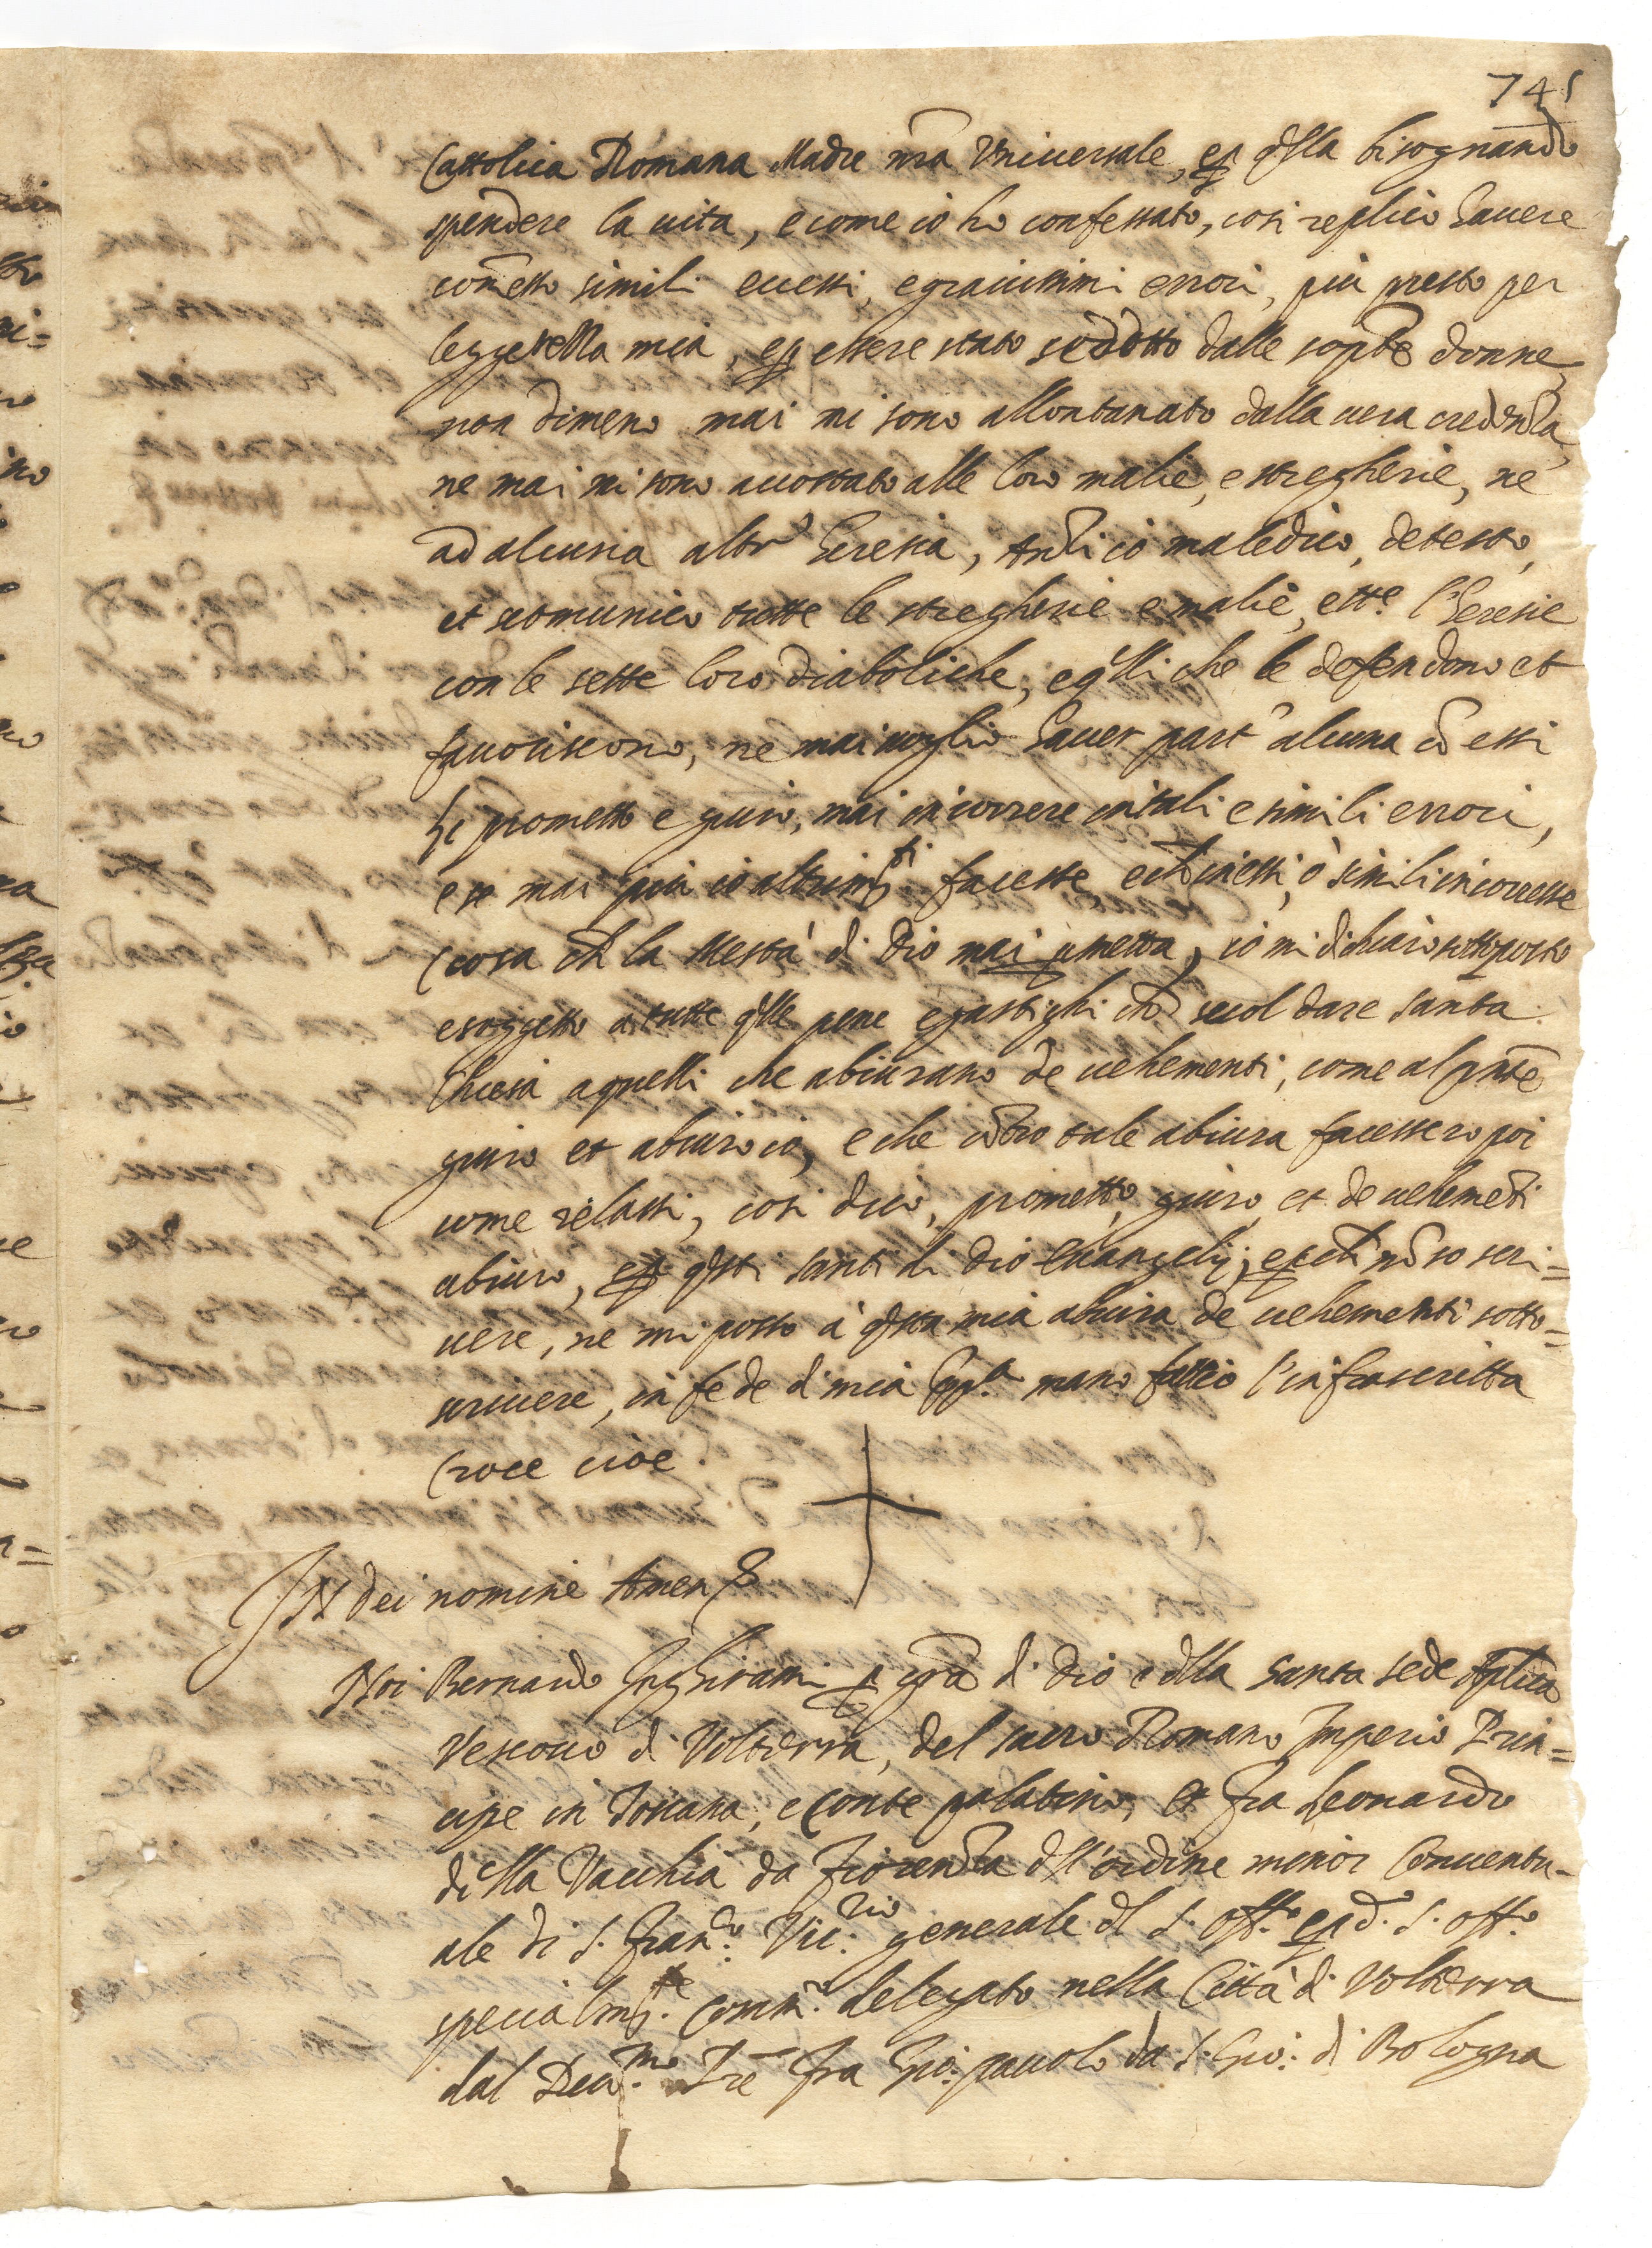 745
Cattolica Romana Madre nrã Vniuersale, e p qlla bisognando
spendere la uita, e come io ho confessato, così replico hauere
com̃esso simili eccessi, e grauissimi errori, più presto per
leggerezza mia, e p essere stato sedotto dalle sopˢᵗᵉ donne
non dimeno mai mi sono allontanato dalla uera credenza,
ne mai mi sono accostato alle loro malie, e stregherie, ne
ad alcuna altr' heresia, Anzi io maledico, detesto,
et scomunico tutte le stregherie e malie, ett.ᵉ l'heresie
con le sette loro diaboliche, e qlli che le defendono et
fauoriscono, ne mai uoglio hauer part' alcuna cõ essi
prometto e giuro, mai incorrere in tali e simili errori,
e se mai più io altrimᵗⁱ facesse, e ch̃ in essi, ò simili incorresse
(cosa ch̃ la Mestà di Dio mai pmetta) io mi dichiaro sottoposto
e soggetto a tutte qlle pene e gastighi ch̃ suol dare santa
Chiesa a quelli che abiurano de uehementi, come al pñte
giuro et abiuro io, e che cõtro tale abiura facessero poi
come relassi, così dico, prometto, giuro, et de uehemẽti
abiuro, e p qsti santi di Dio Euangelij; e p ch̃ nõ so scri=
uere, ne mi posso à qsta mia abiura de uehementi sotto=
scriuere, in fede di mia ppᵃ mano faccio l'infrascritta
Croce cioè. +
IN Dei nomine Amen
Noi Bernardo Inghirami p grã di Dio e dlla santa sede Aplica
Vescouo di Volterra, del sacro Romano Imperio Prin=
cipe in Toscana, e Conte palatino, et fra Leonardo
della Vacchia da Fiorenza dll'ordine minor Conuentu-
ale di S. Franᶜᵒ. Vicʳⁱᵒ. generale dl S. Offᵒ. e p d. S. Offᵒ.
specialmᵗᵉ. comm.ʳⁱᵒ delegato nella Città di Volterra
dal Reu.ᵐᵒ Prẽ fra Gio: pauolo da S. Gio: di Bologna